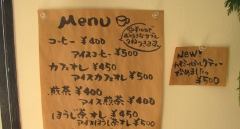 Menu
コーヒー ¥400
アイスコーヒー ¥500
カフェオレ ¥450
アイスカフェオレ ¥500
煎茶 ¥400
アイス煎茶 ¥400
ほうじ茶オレ ¥450
アイスほうじ茶オレ ¥500
New
¥500